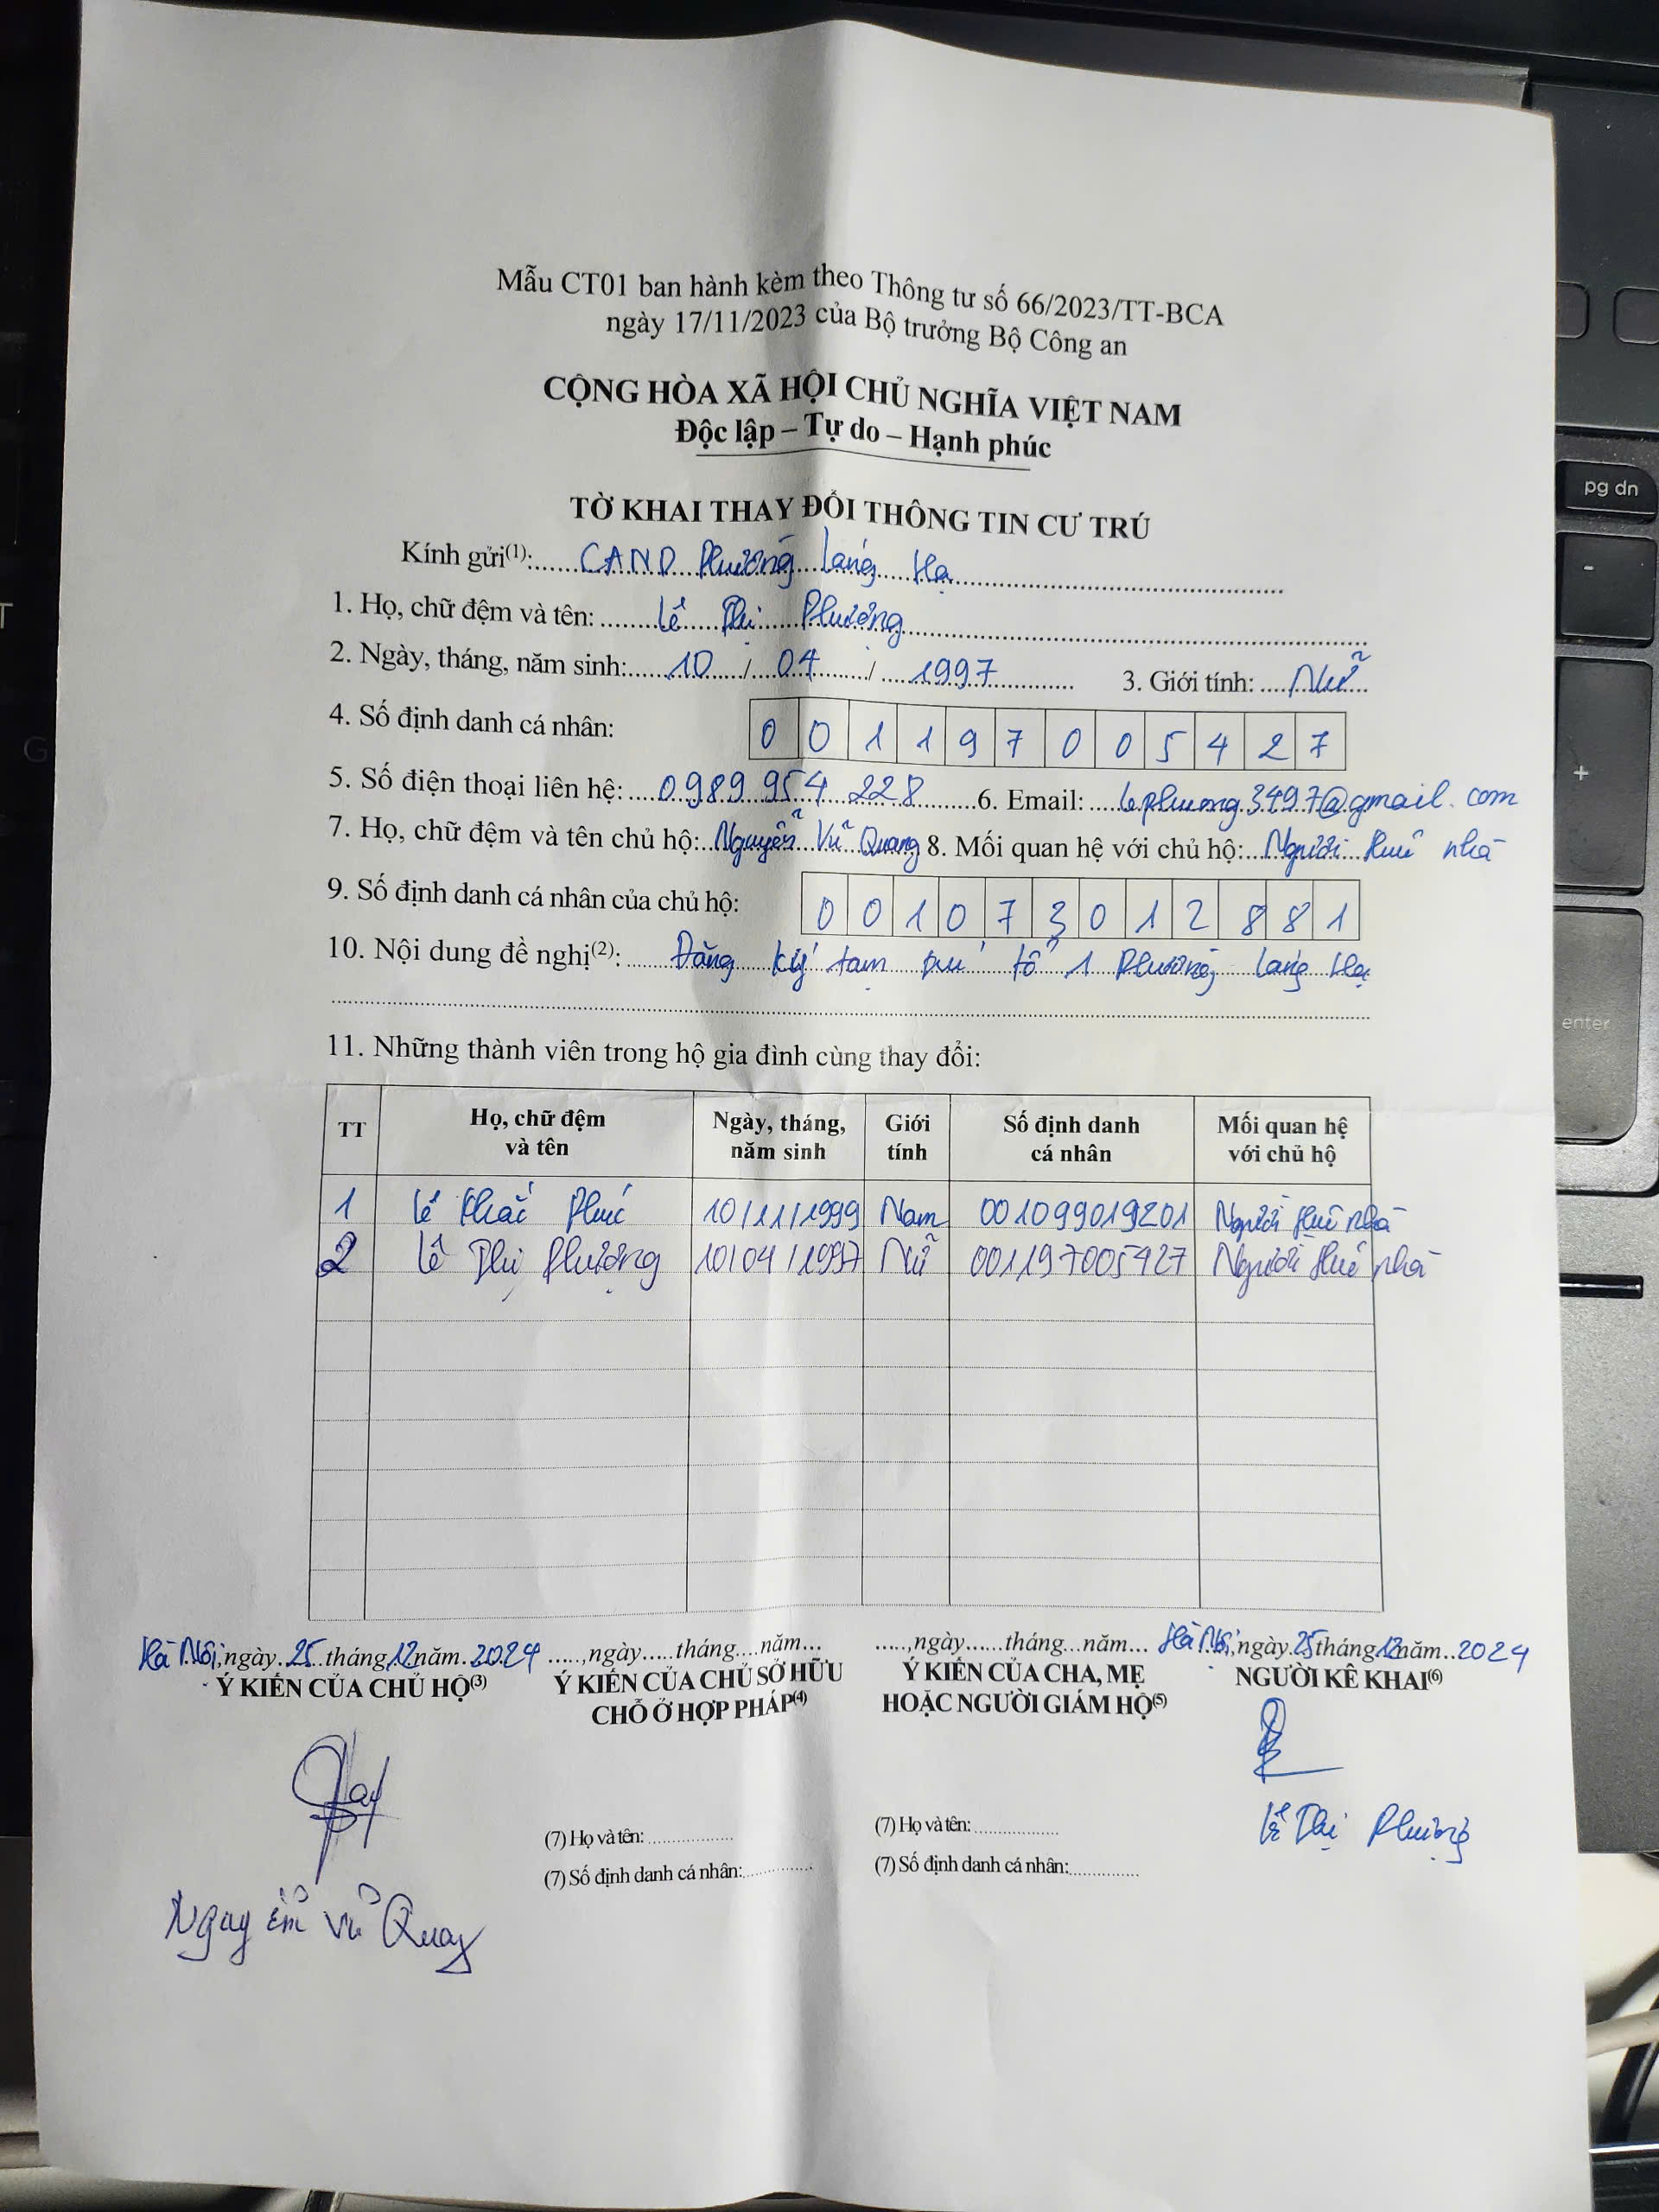 Mẫu CT01 ban hành kèm theo Thông tư số 66/2023/TT-BCA
ngày 17/11/2023 của Bộ trưởng Bộ Công an
CỘNG HÒA XÃ HỘI CHỦ NGHĨA VIỆT NAM
Độc lập – Tự do – Hạnh phúc
TỜ KHAI THAY ĐỔI THÔNG TIN CƯ TRÚ
Kính gửi(1):......CAND Phường Láng Hạ
1. Họ, chữ đệm và tên: Lê Thị Phượng
2. Ngày, tháng, năm sinh: 10 / 04 / 1997 3. Giới tính: Nữ
4. Số định danh cá nhân: 0 0 1 1 9 7 0 0 5 4 2 7
5. Số điện thoại liên hệ: 0989 954 228 6. Email: lephuong.3497@gmail.com
7. Họ, chữ đệm và tên chủ hộ: Nguyễn Vũ Quang 8. Mối quan hệ với chủ hộ: Người thuê nhà
9. Số định danh cá nhân của chủ hộ: 0 0 1 0 7 3 0 1 2 8 8 1
10. Nội dung đề nghị(2): Đăng ký tạm trú tổ 1 Phường Láng Hạ
11. Những thành viên trong hộ gia đình cùng thay đổi:
TT Họ, chữ đệm và tên Ngày, tháng, năm sinh Giới tính Số định danh cá nhân Mối quan hệ với chủ hộ
1 Lê Khắc Phúc 10/11/1999 Nam 001099019201 Người thuê nhà
2 Lê Thị Phượng 10/04/1997 Nữ 001197005427 Người thuê nhà
Hà Nội, ngày 25 tháng 12 năm 2024 ....., ngày......tháng....năm... ....., ngày......tháng...năm... Hà Nội, ngày 25 tháng 12 năm 2024
Ý KIẾN CỦA CHỦ HỘ(3) Ý KIẾN CỦA CHỦ SỞ HỮU Ý KIẾN CỦA CHA, MẸ NGƯỜI KÊ KHAI(6)
CHỖ Ở HỢP PHÁP(4) HOẶC NGƯỜI GIÁM HỘ(5)
(7) Họ và tên: (7) Họ và tên: Lê Thị Phượng
(7) Số định danh cá nhân: (7) Số định danh cá nhân:
Nguyễn Vũ Quang
pg dn
-
+
enter
T
G